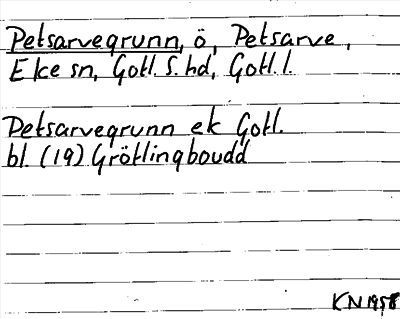 Petsarvegrunn, ö, Petsarve,
Eke sn, Gotl. S. hd, Gotl. l.
Petsarvegrunn ek Gotl.
bl. (19) Grötlingboudd
KN 1958